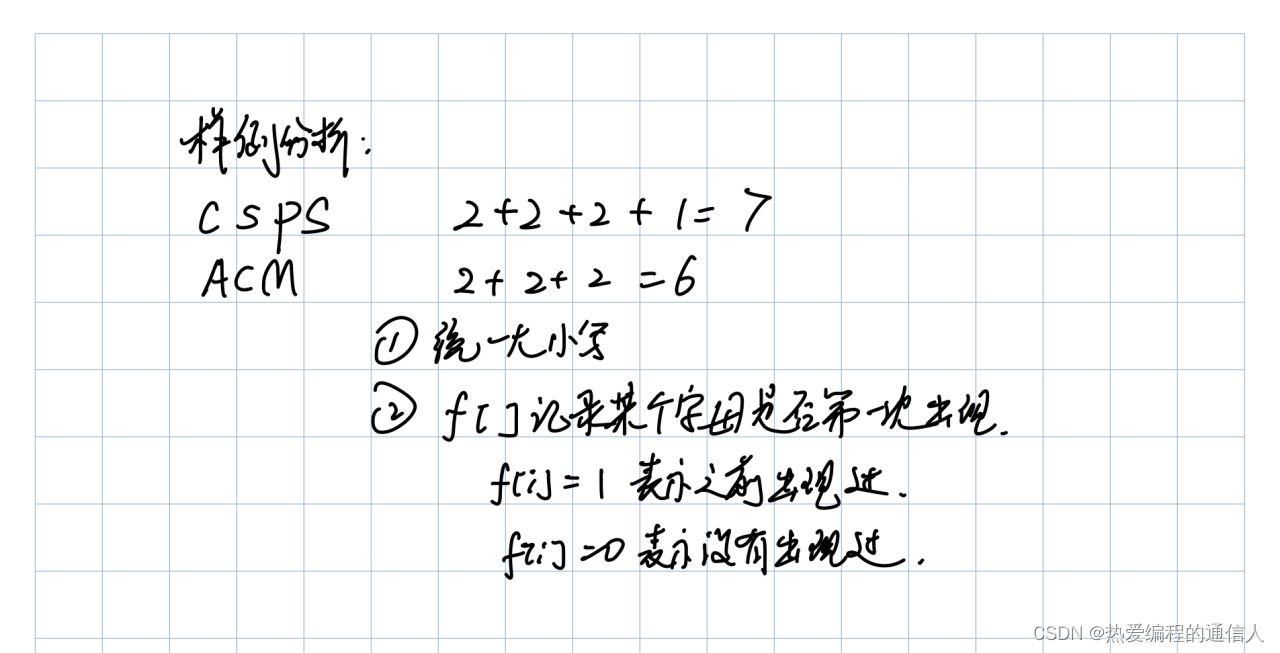 样例分析:
CSPS 2+2+2+1=7
ACM 2+2+2=6
① 统一大小写
② f[]记录某个字母是否第一次出现.
f[i]=1 表示之前出现过.
f[i]=0 表示没有出现过.
CSDN @热爱编程的通信人